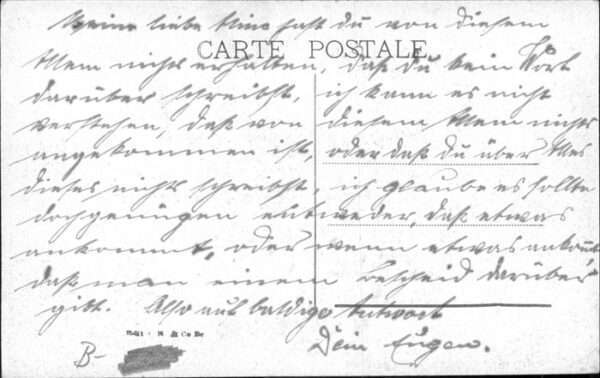 Meine liebe Mino hast du von diesem
CARTE POSTALE
Allem nichts erhalten, daß du kein Wort
darüber schreibst, ich kann es nicht
verstehen, daß von diesem Allem nichts
angekommen ist, oder daß du über Alles
dieses nichts schreibst, ich glaube es sollte
doch genügen entweder, daß etwas
ankommt, oder wenn etwas ankommt
daß man einem Bescheid darüber
gibt. Also auf baldige Antwort
Dein Eugen.
B-